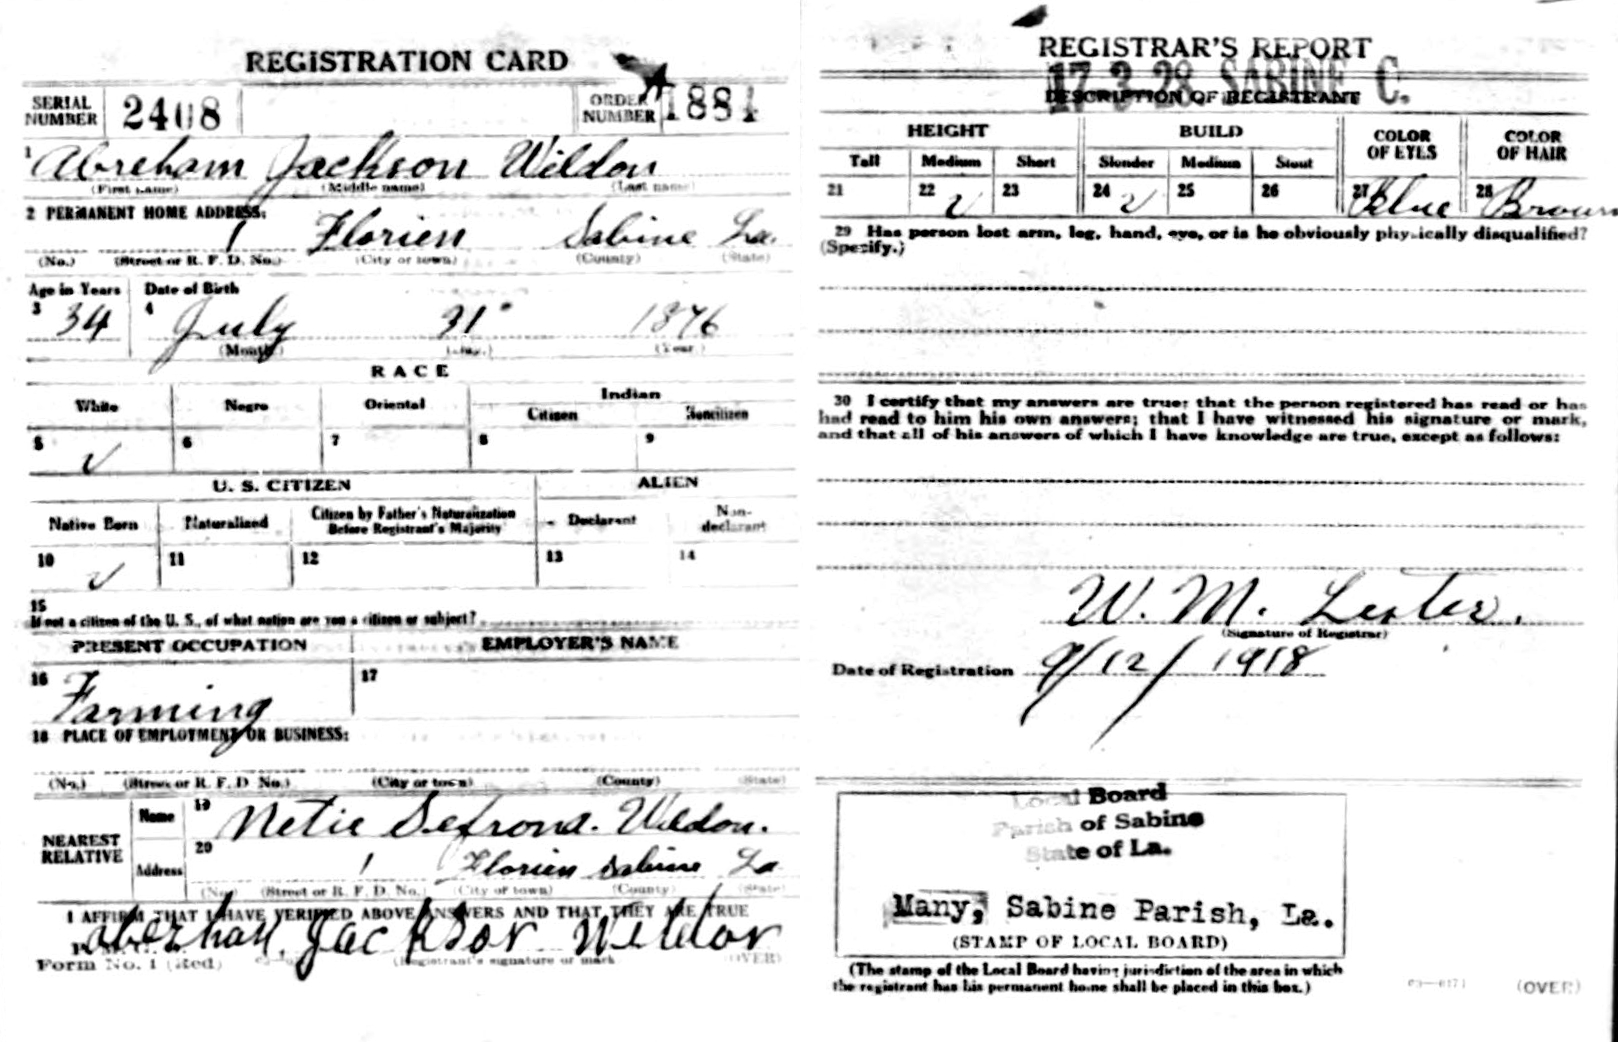 REGISTRATION CARD
SERIAL NUMBER 2408 ORDER NUMBER 1881
1 Abreham Jackson Wildon
(First name) (Middle name) (Last name)
2 PERMANENT HOME ADDRESS:
1 Florien Sabine La.
(No.) (Street or R. F. D. No.) (City or town) (County) (State)
Age in Years Date of Birth
3 34 4 July 31 1876
(Month.) (Day.) (Year.)
RACE
White Negro Oriental Indian
Citizen Noncitizen
5 ✓ 6 7 8 9
U. S. CITIZEN ALIEN
Native Born Naturalized Citizen by Father's Naturalization Before Registrant's Majority Declarant Non-declarant
10 ✓ 11 12 13 14
15
If not a citizen of the U. S., of what nation are you a citizen or subject?
PRESENT OCCUPATION EMPLOYER'S NAME
16 Farming 17
18 PLACE OF EMPLOYMENT OR BUSINESS:
(No.) (Street or R. F. D. No.) (City or town) (County) (State)
NEAREST RELATIVE
Name 19 Netie Wildon.
Address 20 1 Florien Sabine La
(No.) (Street or R. F. D. No.) (City or town) (County) (State)
I AFFIRM THAT I HAVE VERIFIED ABOVE ANSWERS AND THAT THEY ARE TRUE
Aberham Jackson Wildon
Form No. 1 (Red) (Registrant's signature or mark) (OVER)
REGISTRAR'S REPORT
17-3-28 SABINE C.
DESCRIPTION OF REGISTRANT
HEIGHT BUILD COLOR OF EYES COLOR OF HAIR
Tall Medium Short Slender Medium Stout
21 22 ✓ 23 24 ✓ 25 26 27 Blue 28 Brown
29 Has person lost arm, leg, hand, eye, or is he obviously physically disqualified?
(Specify.)
30 I certify that my answers are true; that the person registered has read or has
had read to him his own answers; that I have witnessed his signature or mark,
and that all of his answers of which I have knowledge are true, except as follows:
W. M. Lester.
(Signature of Registrar)
Date of Registration 9/12/1918
Local Board
Parish of Sabine
State of La.
Many, Sabine Parish, La.
(STAMP OF LOCAL BOARD)
(The stamp of the Local Board having jurisdiction of the area in which
the registrant has his permanent home shall be placed in this box.)
(OVER)